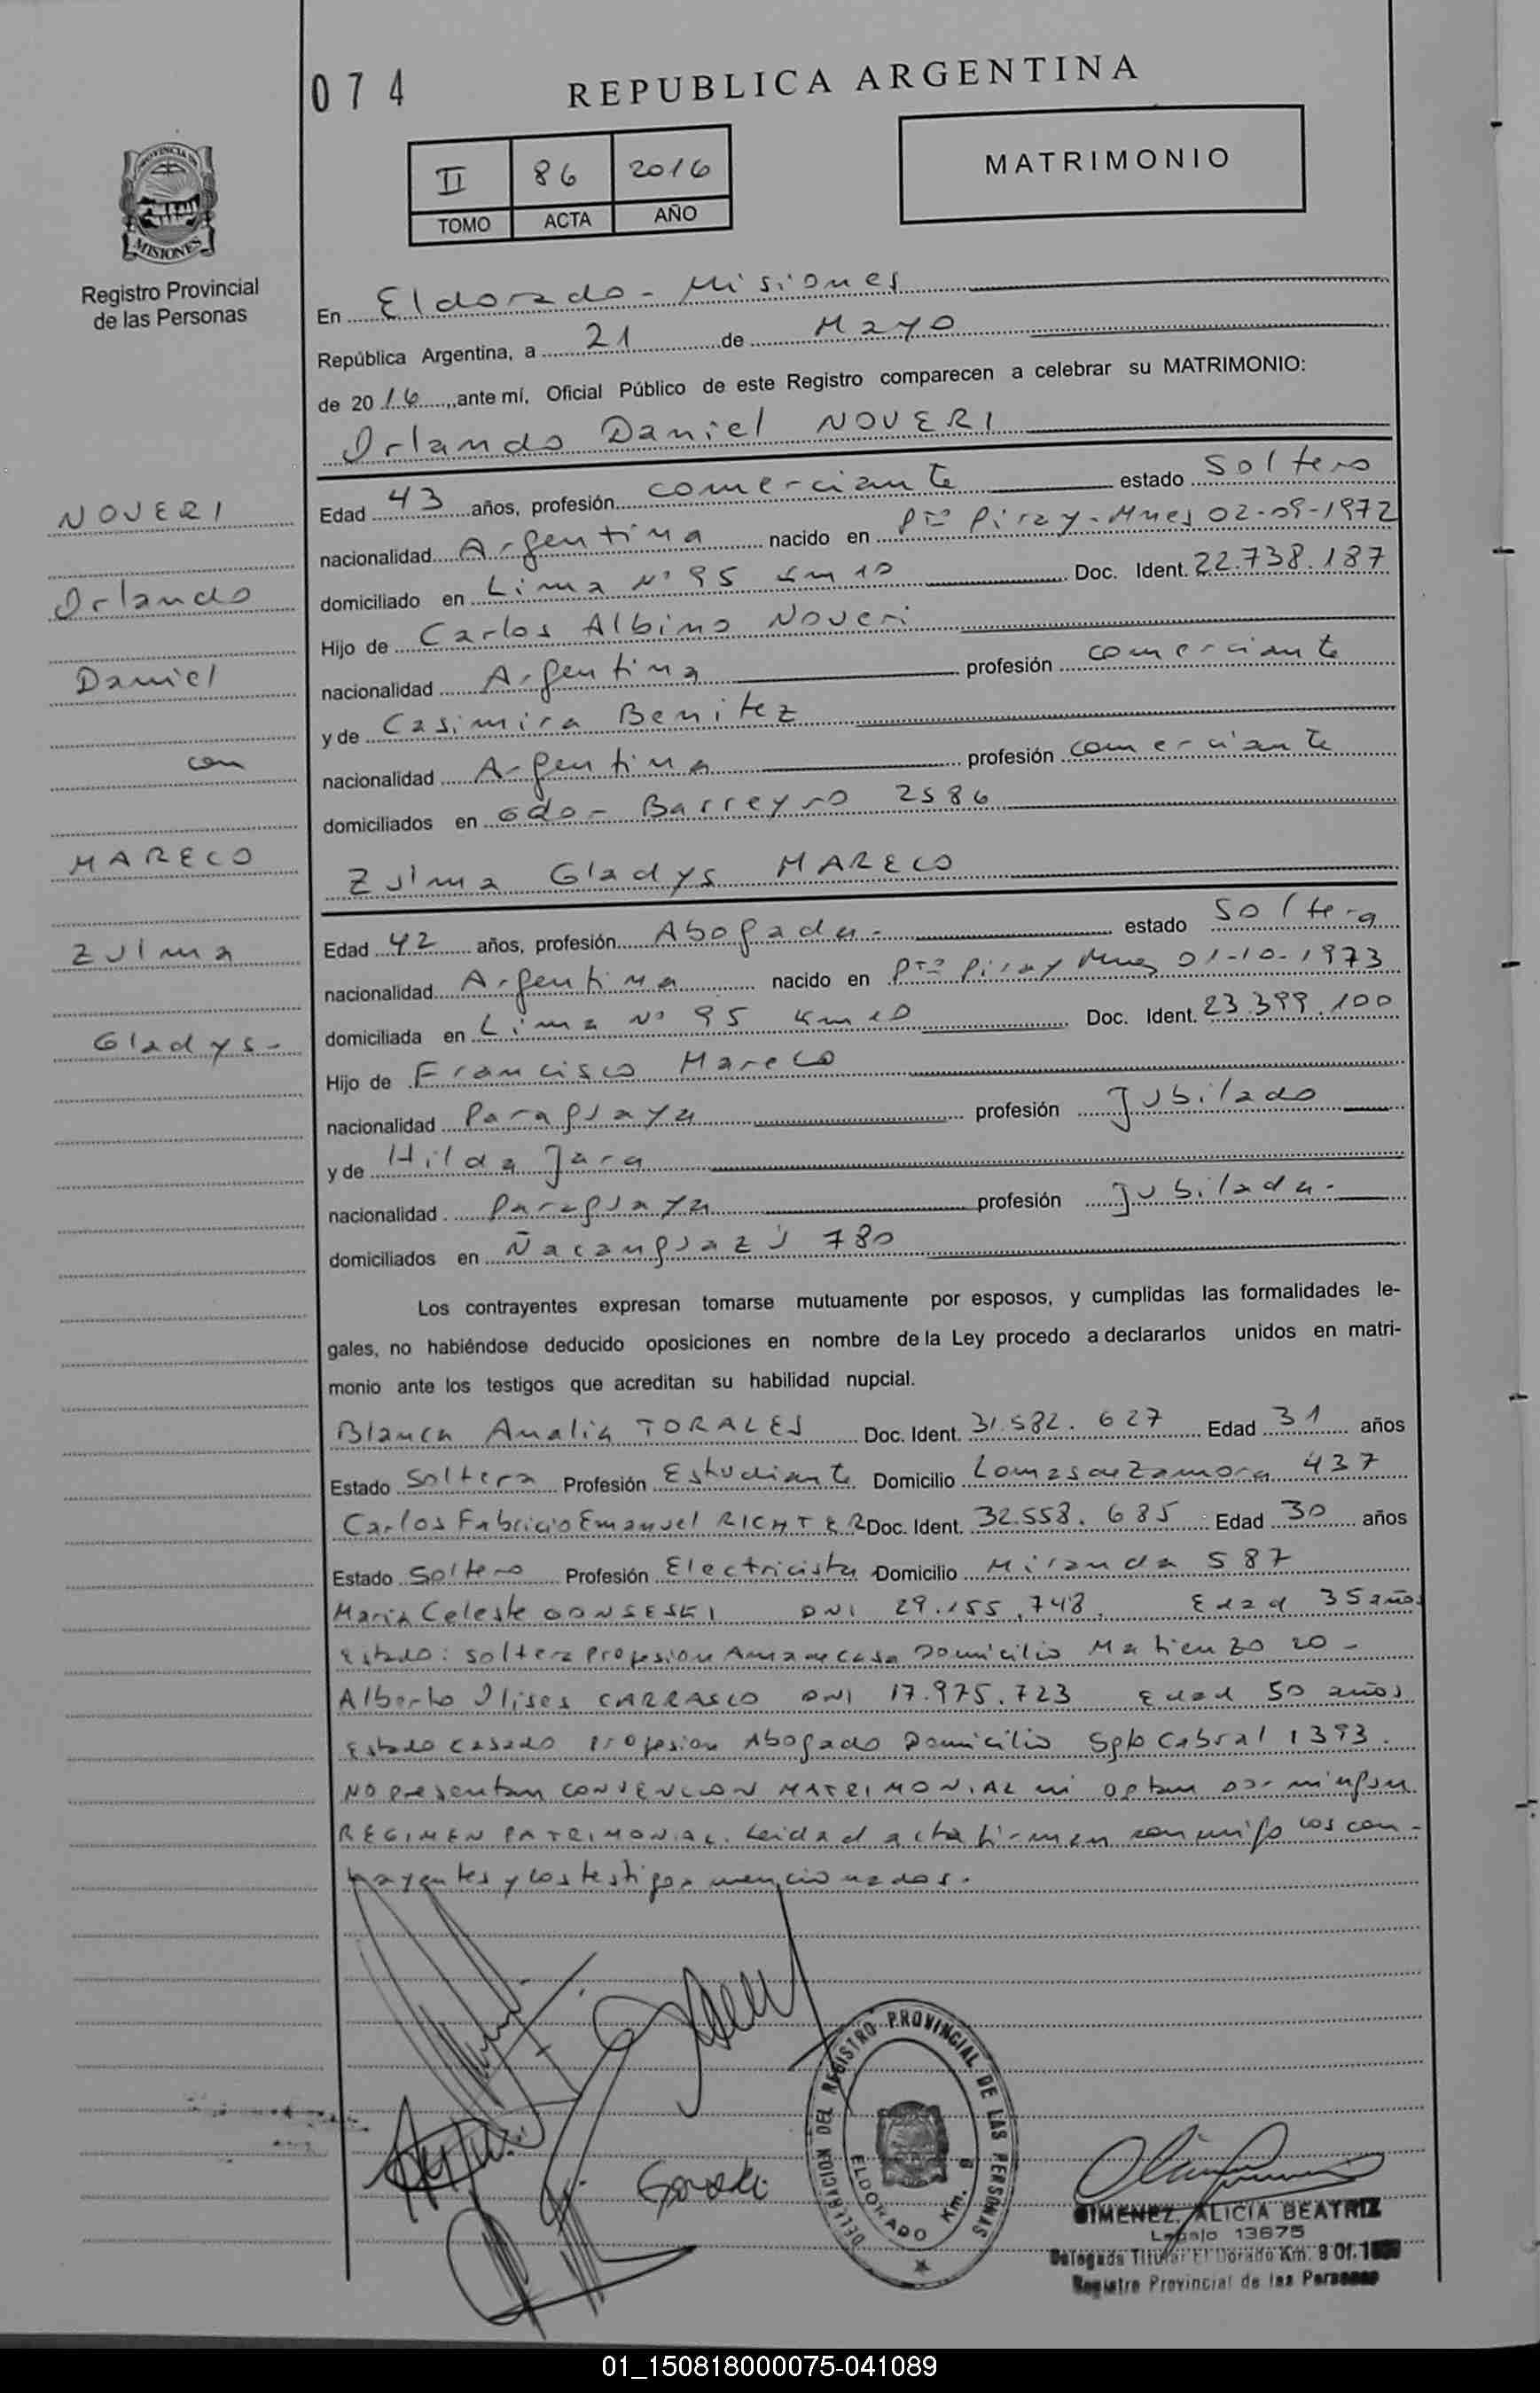 074
REPUBLICA ARGENTINA
MATRIMONIO
II 86 2016
TOMO ACTA AÑO
PROVINCIA DE
MISIONES
Registro Provincial
de las Personas
En Eldorado - Misiones
República Argentina, a 21 de Mayo
de 2016, ante mí, Oficial Público de este Registro comparecen a celebrar su MATRIMONIO:
Orlando Daniel NOVERI
NOVERI
Orlando
Daniel
con
MARECO
Zulma
Gladys-
Edad 43 años, profesión comerciante estado Soltero
nacionalidad Argentina nacido en Pto Piray - Mnes 02-09-1972
domiciliado en Lima Nº 95 Km 10 Doc. Ident. 22.738.187
Hijo de Carlos Albino Noveri
nacionalidad Argentina profesión comerciante
y de Casimira Benitez
nacionalidad Argentina profesión comerciante
domiciliados en Gdo- Barreyro 2586
Zulma Gladys MARECO
Edad 42 años, profesión Abogada - estado Soltera
nacionalidad Argentina nacido en Pto Piray Mnes 01-10-1973
domiciliada en Lima Nº 95 Km 10 Doc. Ident. 23.399.100
Hijo de Francisco Mareco
nacionalidad Paraguaya profesión Jubilado
y de Hilda Jara
nacionalidad Paraguaya profesión Jubilada-
domiciliados en Ñacanguazú 780
Los contrayentes expresan tomarse mutuamente por esposos, y cumplidas las formalidades le-
gales, no habiéndose deducido oposiciones en nombre de la Ley procedo a declararlos unidos en matri-
monio ante los testigos que acreditan su habilidad nupcial.
Blanca Analia TORALES Doc. Ident. 31.582.627 Edad 31 años
Estado Soltera Profesión Estudiante Domicilio Lomas de Zamora 437
Carlos Fabricio Emanuel RICHTER Doc. Ident. 32.558.685 Edad 30 años
Estado Soltero Profesión Electricista Domicilio Miranda 587
Maria Celeste DNI 29.155.748. Edad 35 años
Estado: soltera Profesion Ama de Casa Domicilio Matienzo 20 -
Alberto Ulises CARRASCO DNI 17.975.723 Edad 50 años
Estado casado Profesion Abogado Domicilio Sgto Cabral 1393.
NO presentan CONVENCION MATRIMONIAL ni optan por ningun
REGIMEN PATRIMONIAL. Leida el acta firman conmigo los con-
trayentes y los testigos mencionados.
DELEGACION DEL REGISTRO PROVINCIAL DE LAS PERSONAS
ELDORADO Km. 9
GIMENEZ, ALICIA BEATRIZ
Legajo 13675
Delegada Titular El Dorado Km. 9 Of.
Registro Provincial de las Personas
01_150818000075-041089